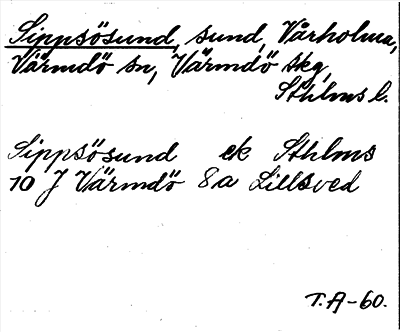 Sippsösund, sund, Vårholma,
Värmdö sn, Värmdö skg,
Sthlms l.
Sippsösund ek Sthlms
10 J Värmdö 8a Lillsved
T. A-60.